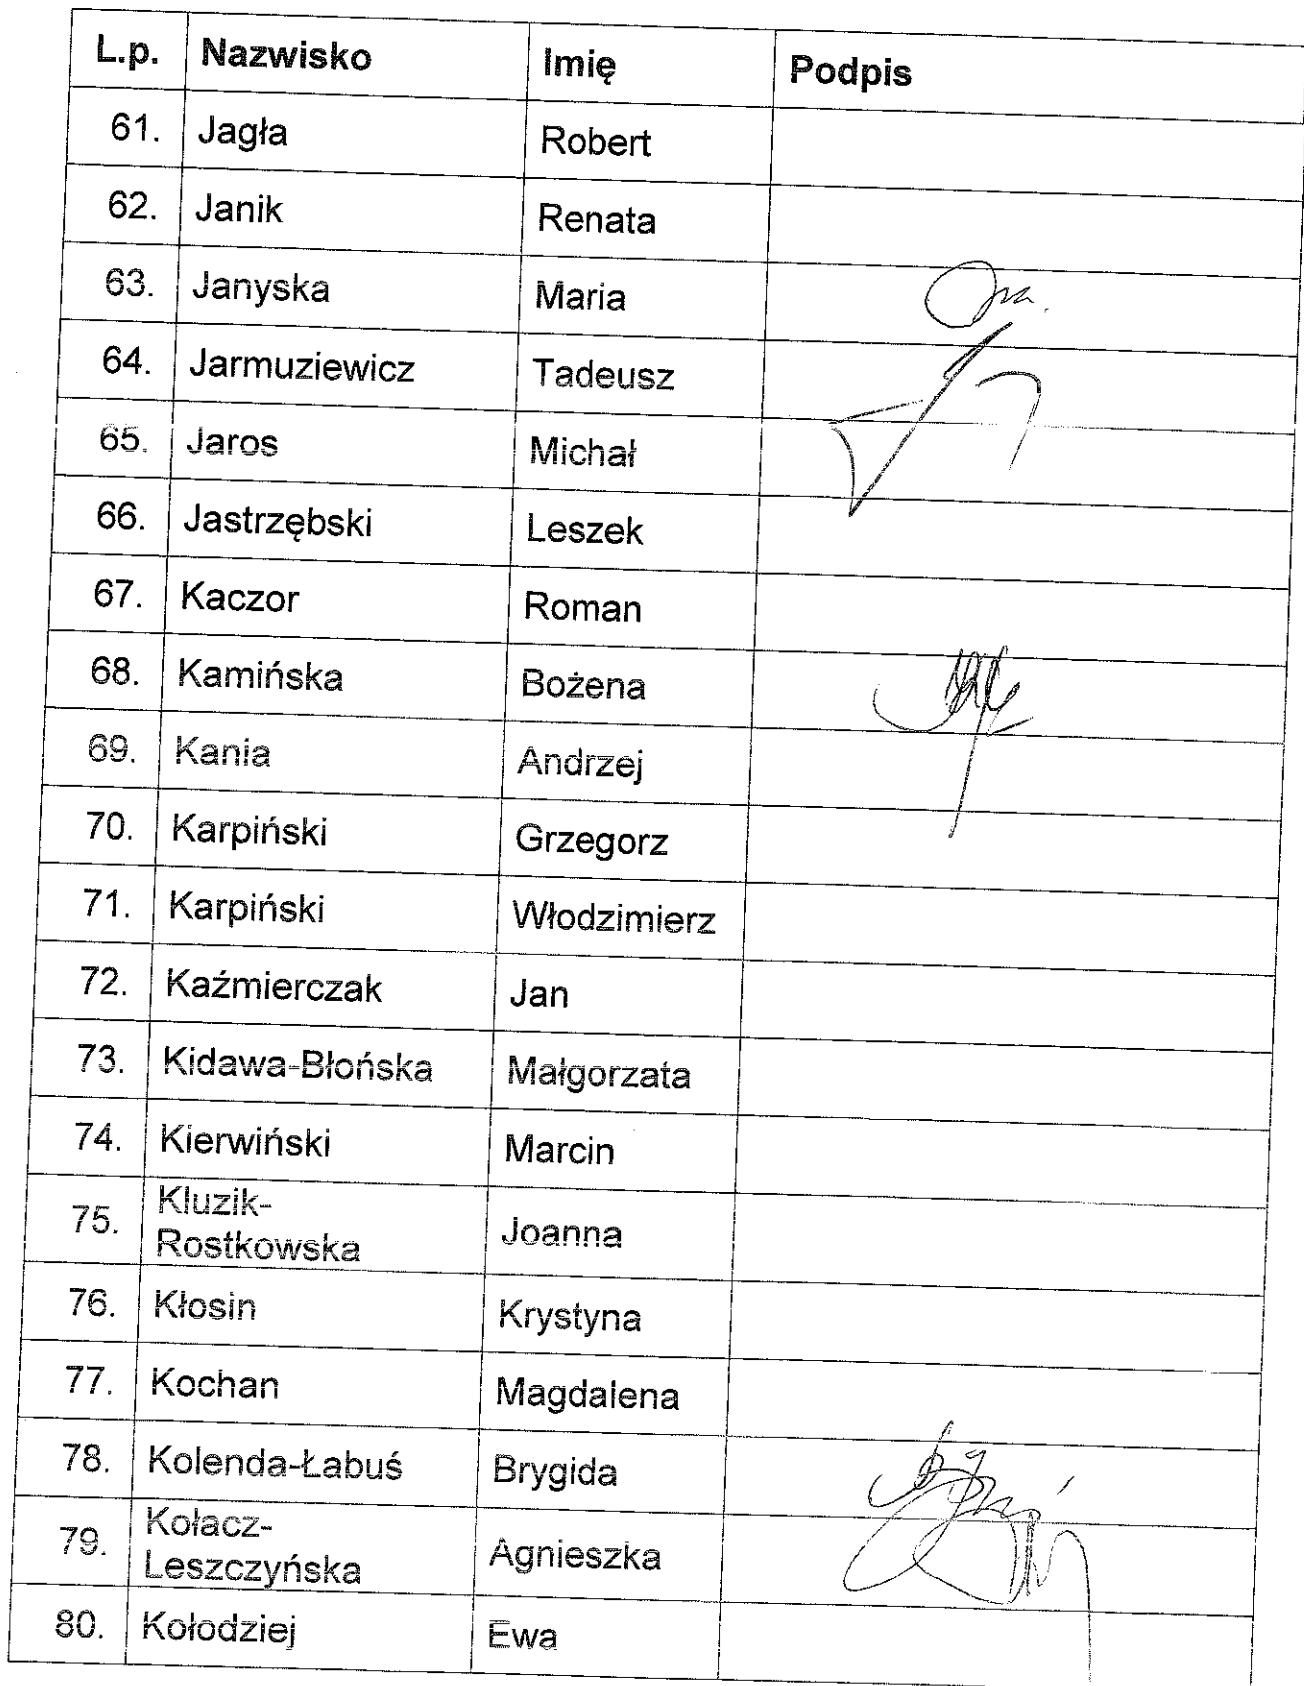 L.p. Nazwisko Imię Podpis
61. Jagła Robert
62. Janik Renata
63. Janyska Maria
64. Jarmuziewicz Tadeusz
65. Jaros Michał
66. Jastrzębski Leszek
67. Kaczor Roman
68. Kamińska Bożena
69. Kania Andrzej
70. Karpiński Grzegorz
71. Karpiński Włodzimierz
72. Kaźmierczak Jan
73. Kidawa-Błońska Małgorzata
74. Kierwiński Marcin
75. Kluzik-
Rostkowska Joanna
76. Kłosin Krystyna
77. Kochan Magdalena
78. Kolenda-Łabuś Brygida
79. Kołacz-
Leszczyńska Agnieszka
80. Kołodziej Ewa